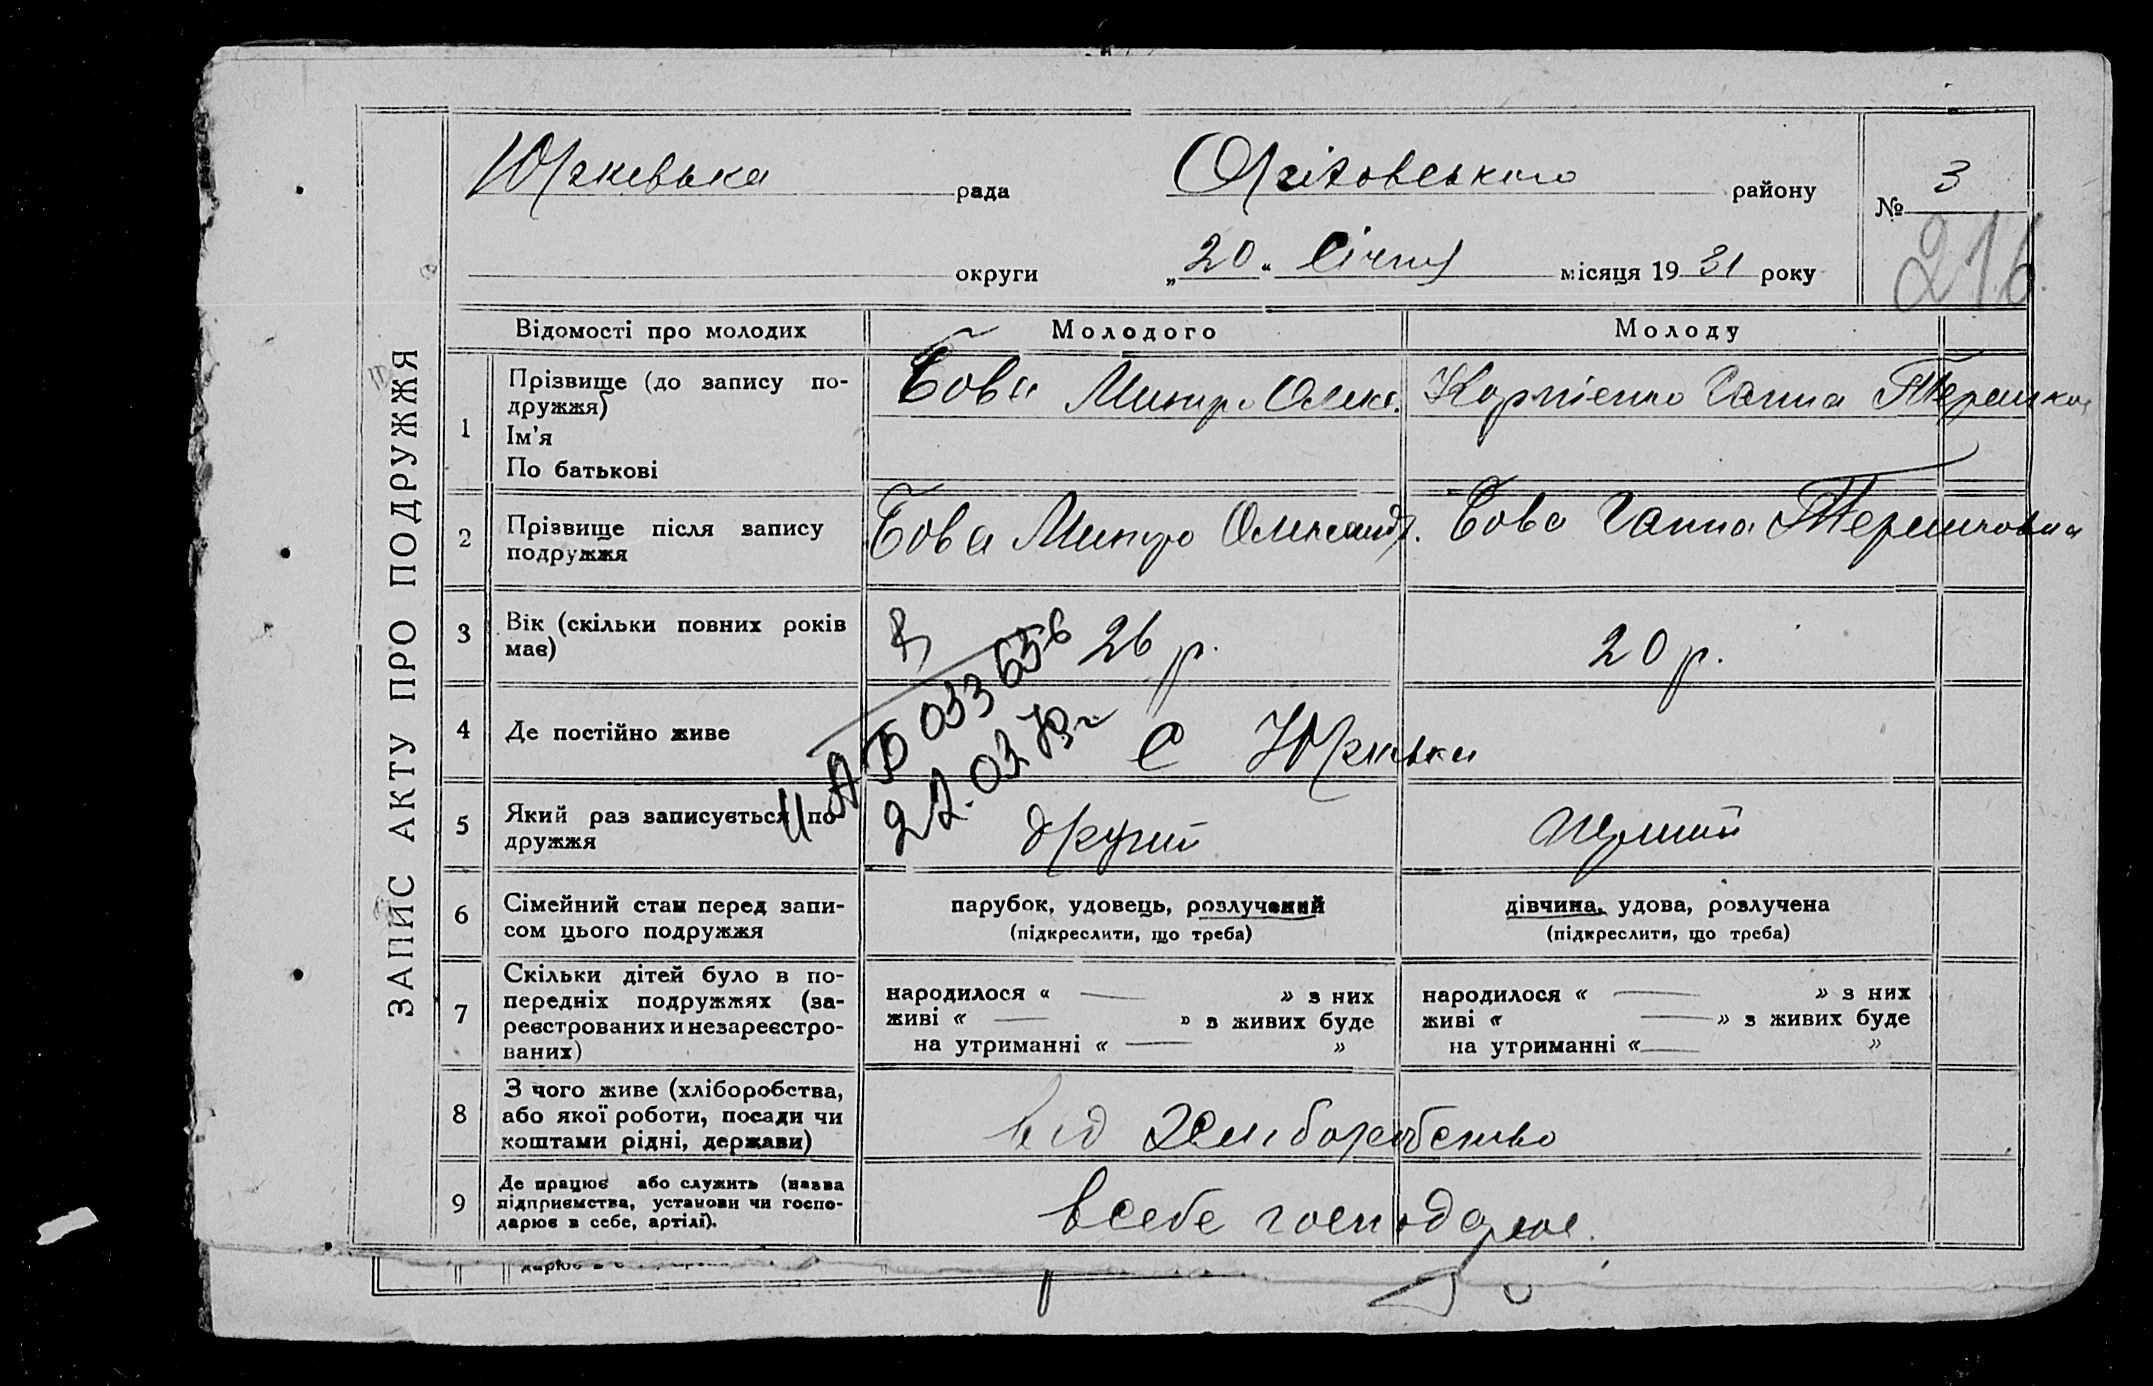 ЗАПИС АКТУ ПРО ПОДРУЖЖЯ
Юрківська рада Оріховського району № 3
216
округи „20“ Січня місяця 1931 року
Відомості про молодих Молодого Молоду
1 Прізвище (до запису по-
дружжя)
Ім'я
По батькові
Бова Митро Олекс. Корнієнко Ганна Терешков
2 Прізвище після запису
подружжя
Бова Митро Олександ. Бова Ганна Терешковна
3 Вік (скільки повних років
має)
26 р. 20 р.
4 Де постійно живе
С Юрківки
II АБ 033656
22.03.79г
5 Який раз записується по-
дружжя
другий перший
6 Сімейний стан перед запи-
сом цього подружжя
парубок, удовець, розлучений
(підкреслити, що треба)
дівчина, удова, розлучена
(підкреслити, що треба)
7 Скільки дітей було в по-
передніх подружжях (за-
реєстрованих и незареєстро-
ваних)
народилося « — » з них
живі « — » з живих буде
на утриманні « — »
народилося « — » з них
живі « — » з живих буде
на утриманні « — »
8 З чого живе (хліборобства,
або якої роботи, посади чи
коштами рідні, держави)
від хліборобство
9 Де працює або служить (назва
підприємства, установи чи госпо-
дарює в себе, артілі).
в себе господарює.